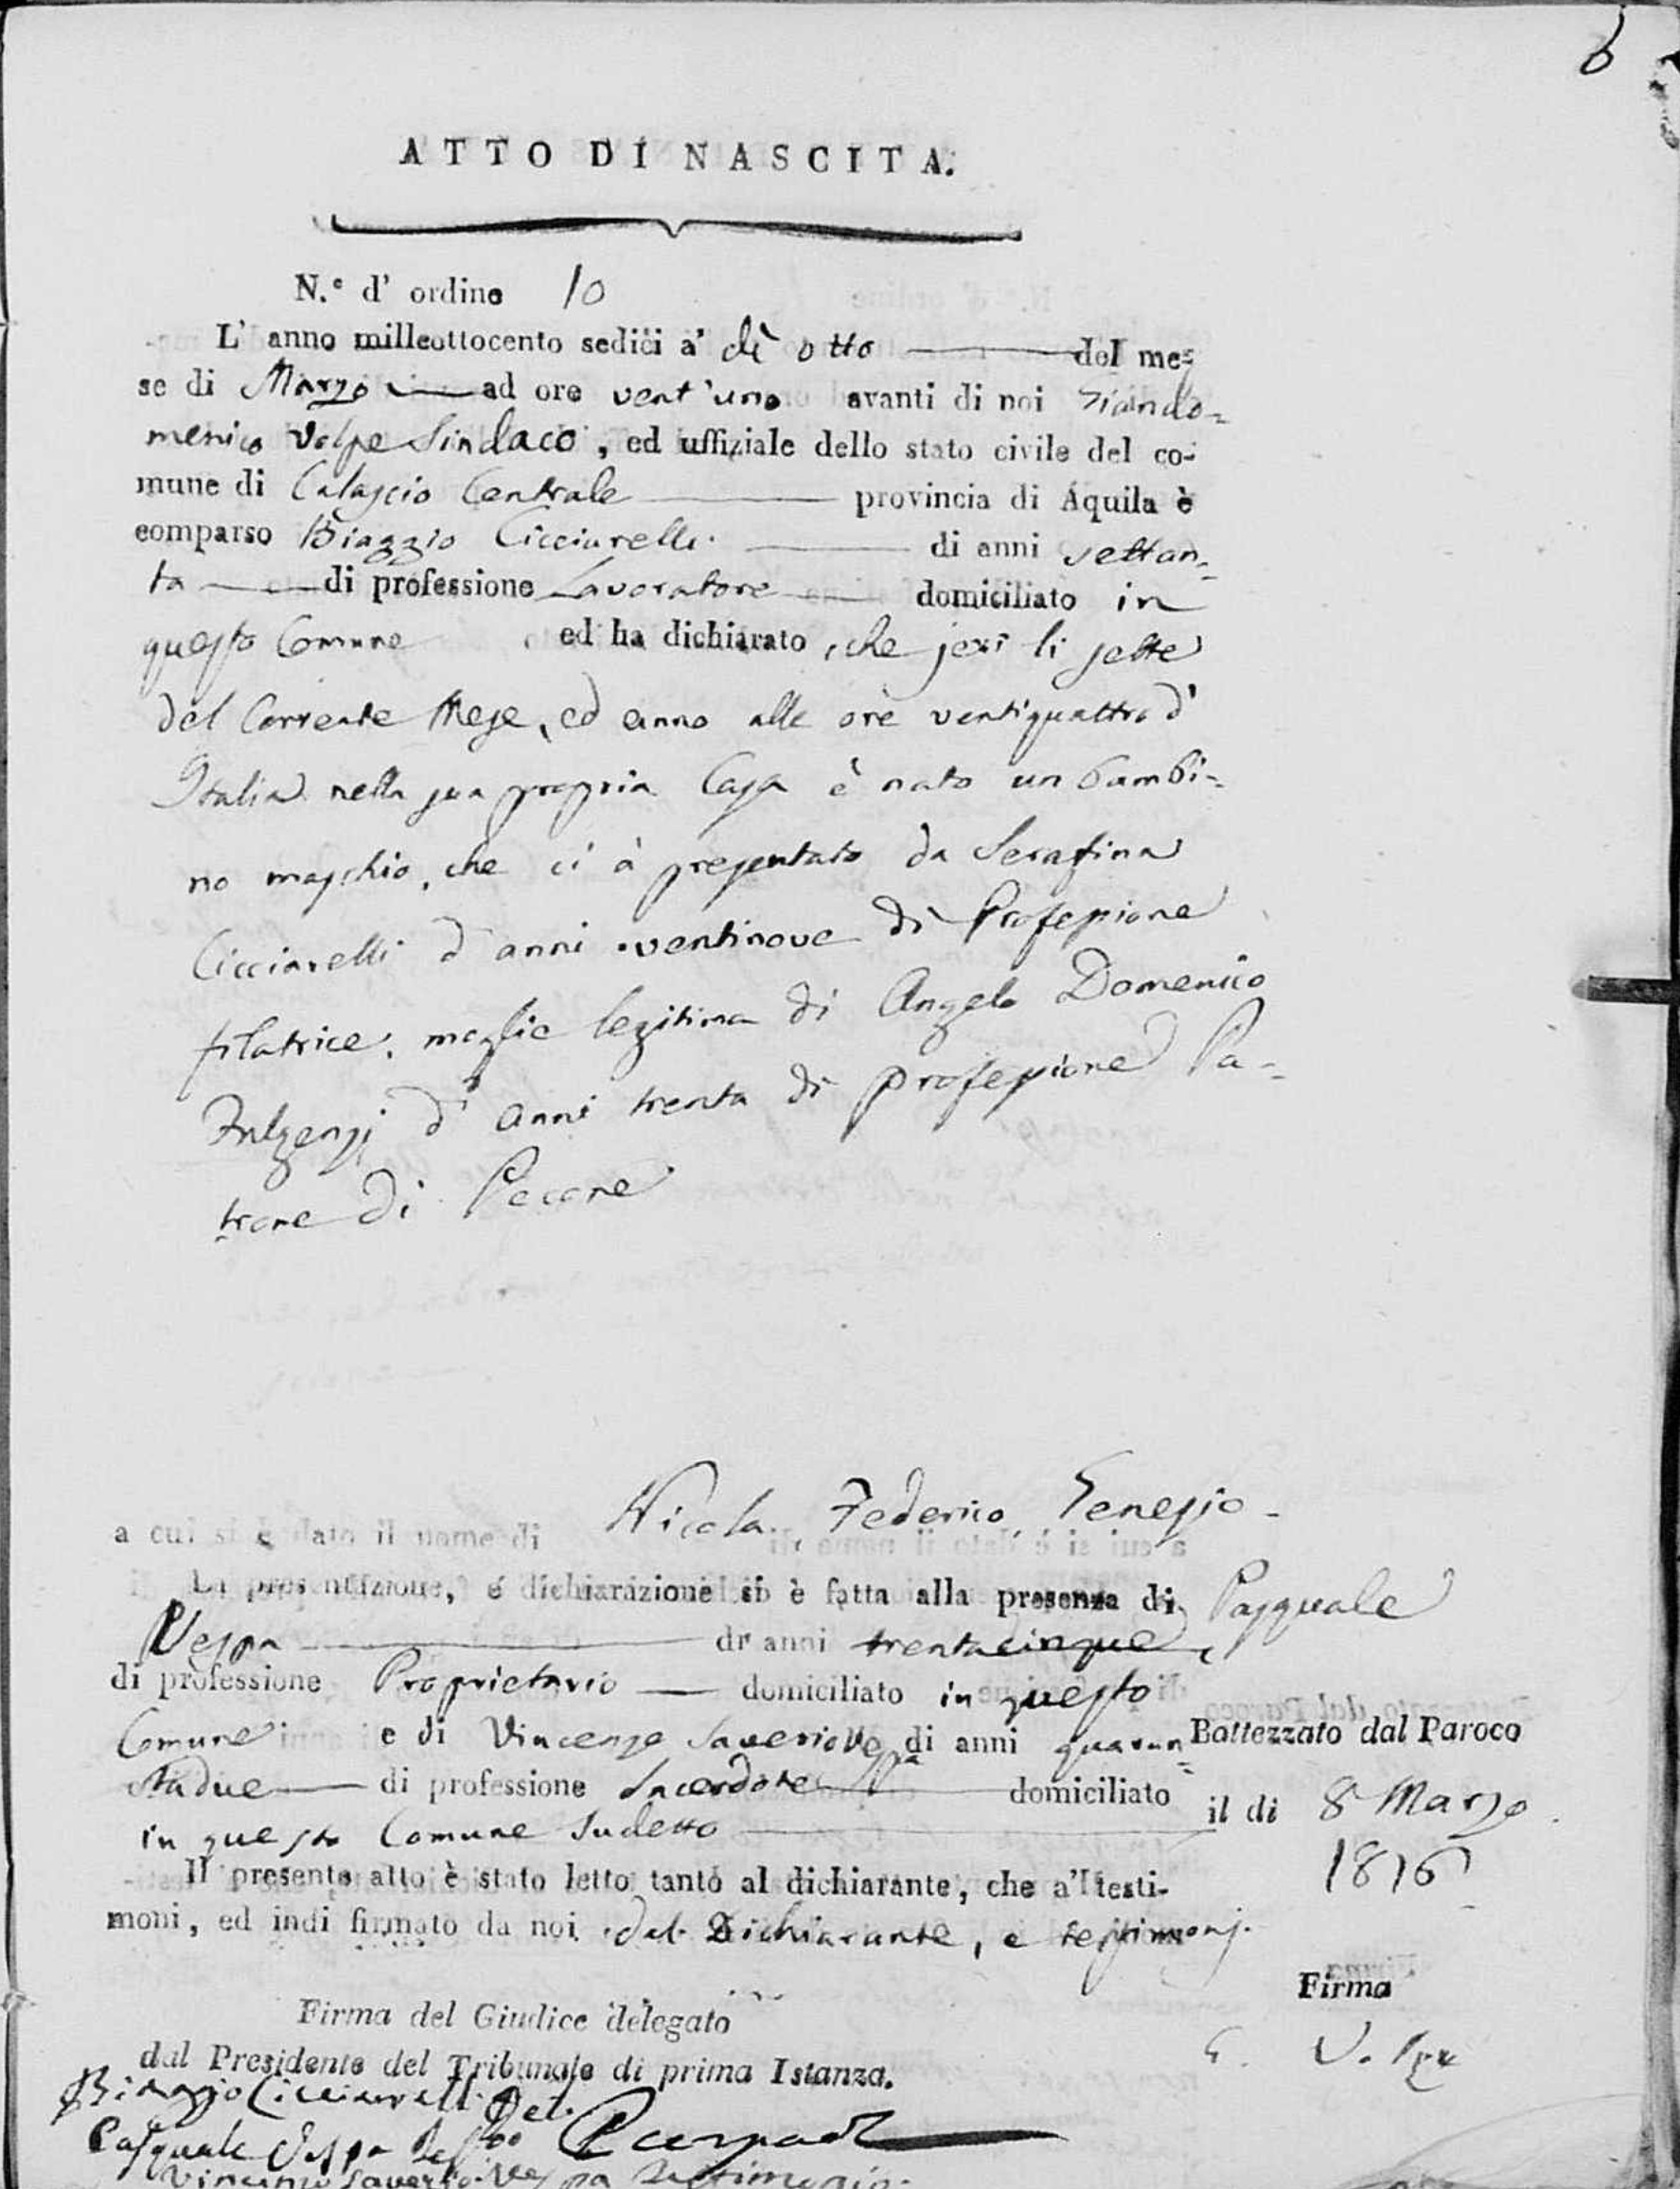 6
ATTO DI NASCITA.
N.° d' ordine 10
L' anno milleottocento sedici a' dì otto del me-
se di Marzo ad ore vent'uno avanti di noi Giando-
menico Volpe Sindaco, ed uffiziale dello stato civile del co-
mune di Calascio Centrale provincia di Aquila è
comparso Biaggio Cicciarelli di anni settan-
ta di professione Lavoratore domiciliato in
questo Comune ed ha dichiarato, che jeri li sette
del Corrente Mese, ed anno alle ore ventiquattro d'
Italia nella sua propria Casa è nato un bambi-
no maschio, che ci à presentato da Serafina
Cicciarelli d'anni ventinove di Professione
filatrice, moglie legitima di Angelo Domenico
Fulgenzj d'anni trenta di professione Pa-
trone di Pecore
a cui si è dato il nome di Nicola, Federico, Genesio -
La presentazione, e dichiarazione si è fatta alla presenza di Pasquale
Vespa di anni trentacinque,
di professione Proprietario domiciliato in questo
Comune e di Vincenzo Saverio Vespa di anni quaran-
tadue di professione Sacerdote domiciliato
in questo Comune sudetto
Il presente atto è stato letto tanto al dichiarante, che a' testi-
moni, ed indi firmato da noi, dal Dichiarante, e testimonj.
Battezzato dal Paroco
il di 8 Marzo
1816
Firma
G. Volpe
Firma del Giudice delegato
dal Presidente del Tribunale di prima Istanza.
Biaggio Cicciarelli
Pasquale Vespa
Vincenzo Saverio Vespa Testimonio